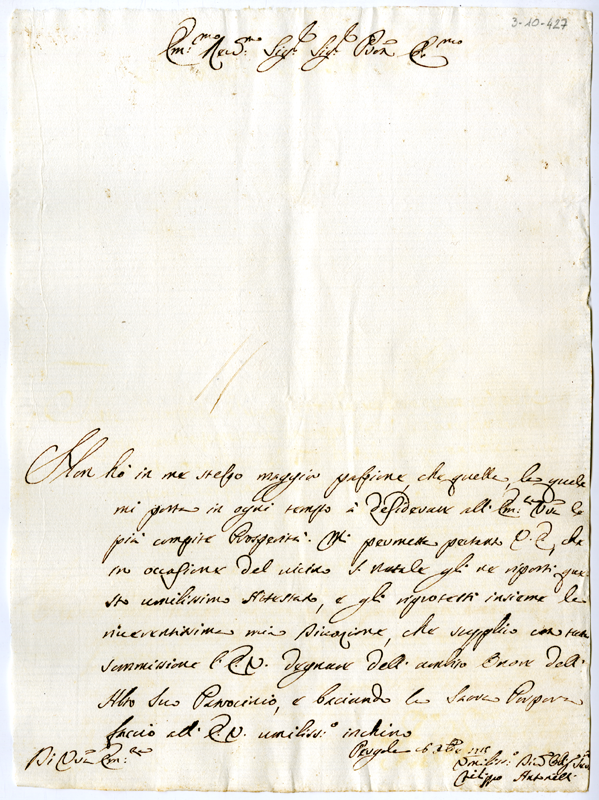 3-10-427
Em.mo Rev.mo Sig.r Sig.r Pron Co.mo
Non hò in me stesso maggior passione che quella, la quale
mi porta in ogni tempo à desiderare all' Em.za Vra le
più compite Prosperità. Mi permetta pertanto V. E., che
in occasione del vicino S. Natale gli ne riporti que
sto umilissimo Attestato, e gli riprotesti insieme la
riverentissima mia Divozione, che supplico con tutta
sommissione l' E. V. degnare dell' ambito Onore dell'
Alto suo Patrocinio, e baciando la Sacra Porpora
faccio all' E. V. umiliss.o inchino
Di Vra Em.za
Pergola
Umiliss.o
Filippo Antonelli